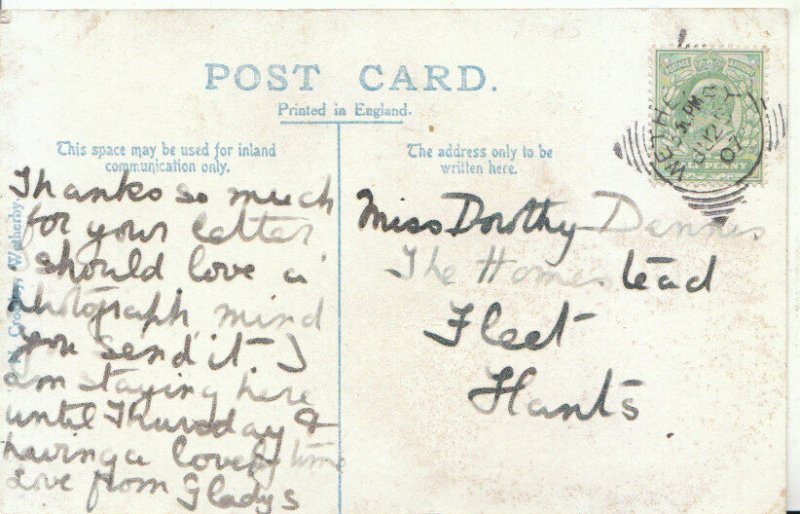 POST CARD.
Printed in England.
This space may be used for inland
communication only.
The address only to be
written here.
Thanks so much
for your letter
I should love a
photograph, mind
you send it I
am staying here
until Thursday &
having a lovely time
Love from Gladys
Miss Dorothy Dennis
The Homestead
Fleet
Hants
Wetherby
HALF PENNY
WETHERBY
PM
07